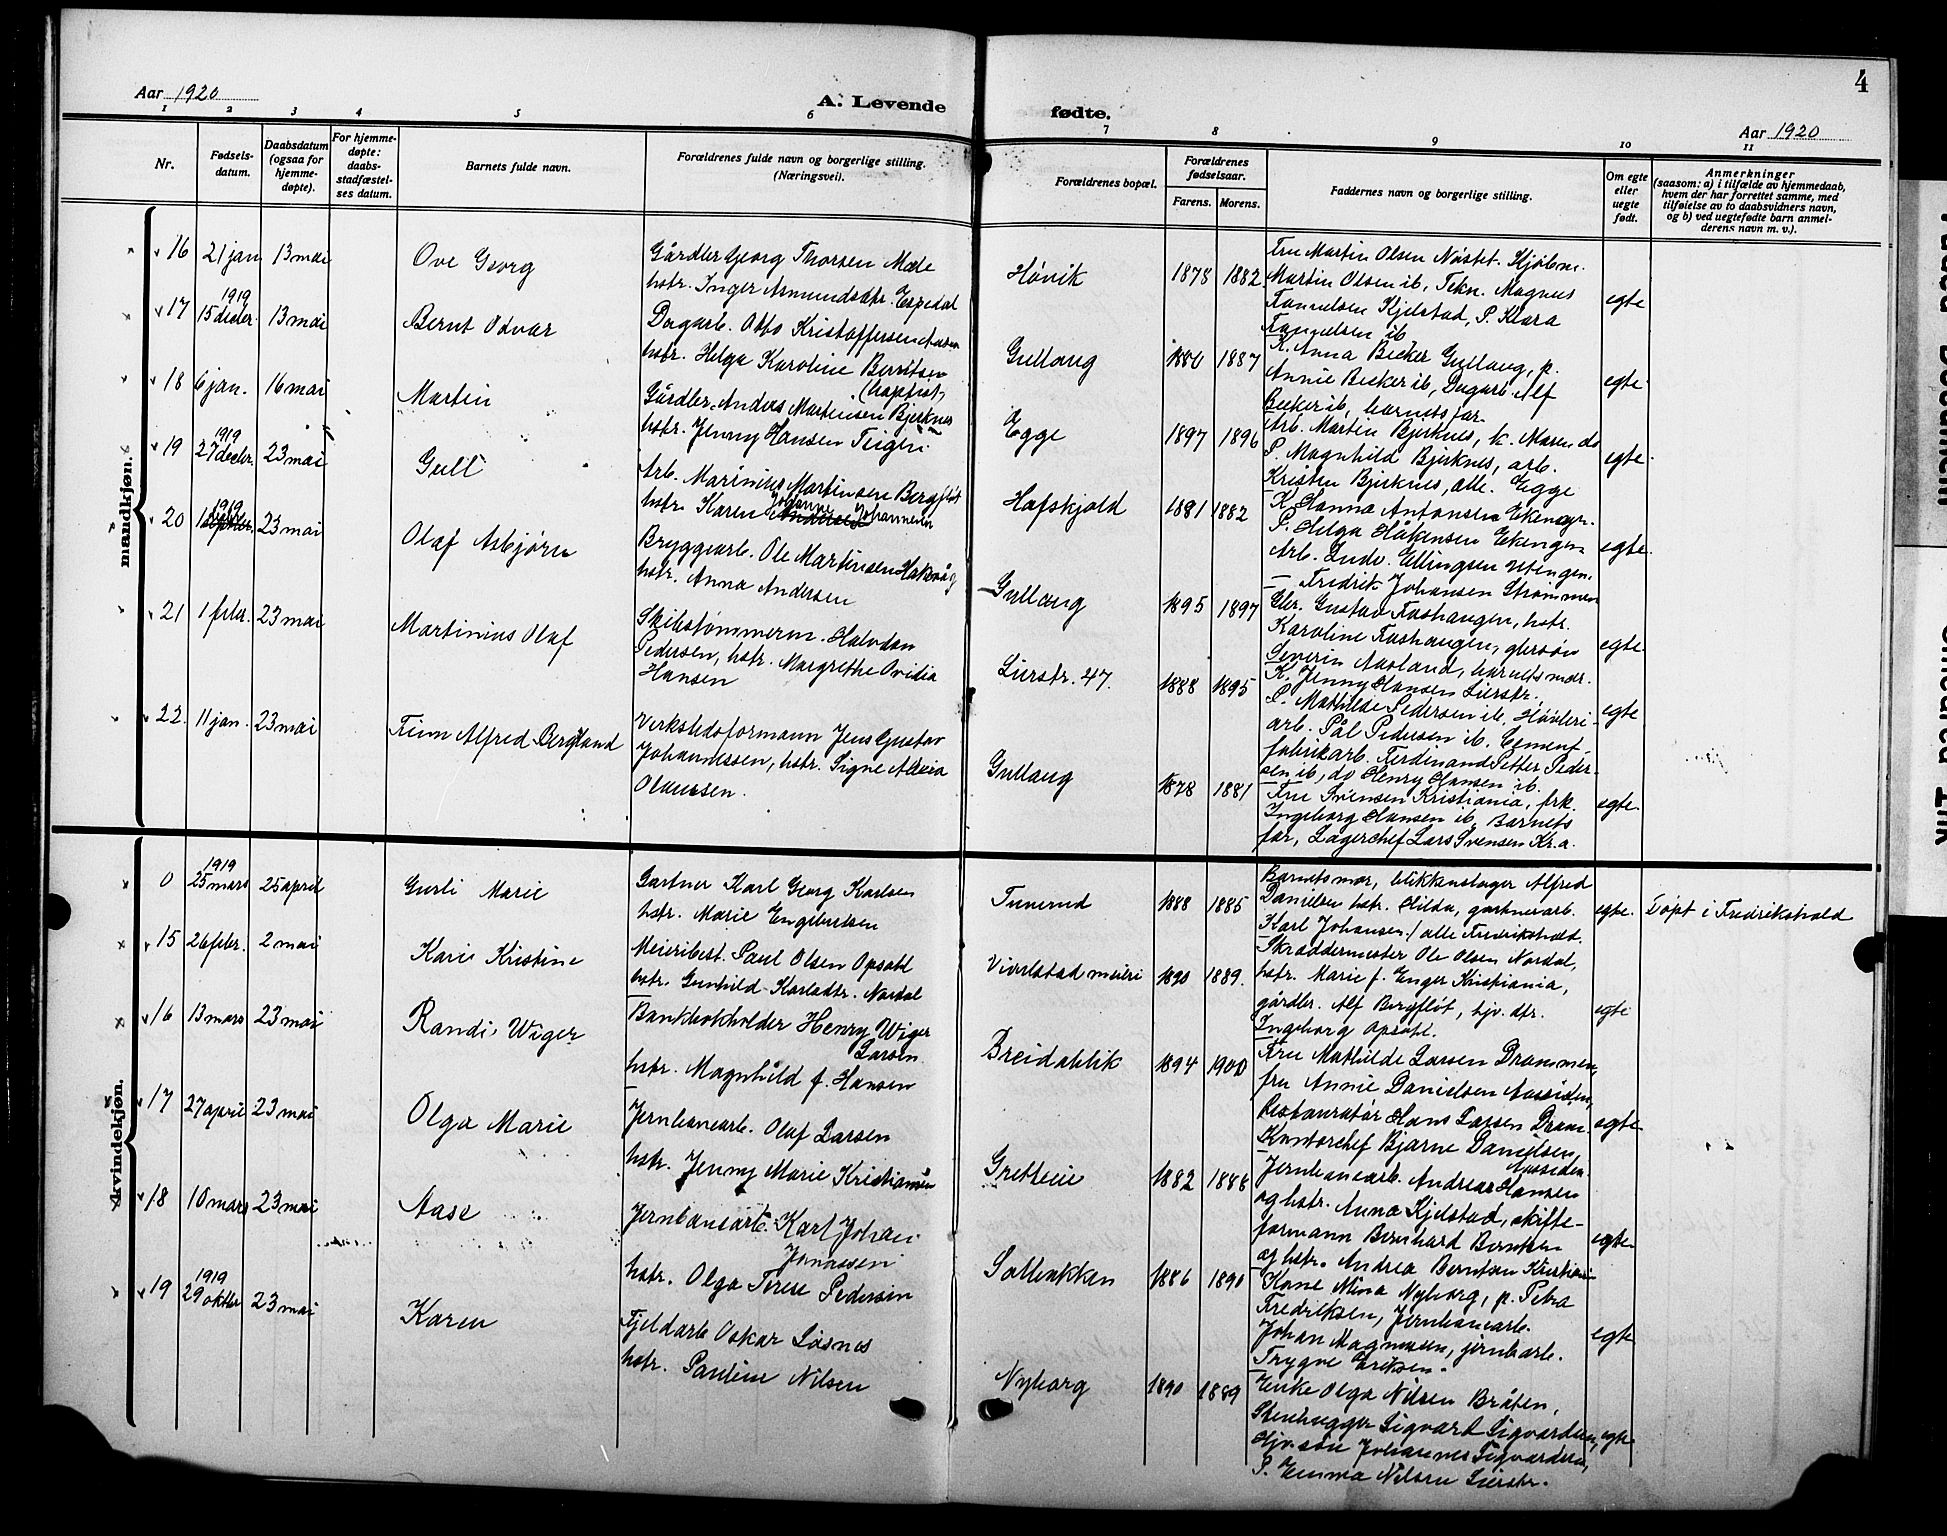 4
Aar 1920
A. Levende
fødte.
Aar 1920
1 2 3 4 5 6 7 8 9 10 11
Nr.
Fødsels-
datum.
Daabsdatum
(ogsaa for
hjemme-
døpte).
For hjemme-
døpte:
daabs-
stadfæstel-
ses datum.
Barnets fulde navn.
Forældrenes fulde navn og borgerlige stilling.
(Næringsvei).
Forældrenes bopæl.
Forældrenes
fødselsaar.
Farens. Morens.
Faddernes navn og borgerlige stilling.
Om egte
eller
uegte
født.
Anmerkninger
(saasom: a) i tilfælde av hjemmedaab,
hvem der har forrettet samme, med
tilføielse av to daabsvidners navn,
og b) ved uegtefødte barn anmel-
derens navn m. v.).
mandkjøn.
16 21 jan 13 mai Ove Georg
Gårdbr Georg Thorsen Mæle
hstr. Inger Asmundsdtr. Espedal
Høvik 1878 1882
Fru Martin Olsen Nøstet. Kjøbm.
Martin Olsen ib, Tekn. Magnus
Kjelstad, P. Klara
ib
egte
17 1919
15 decbr. 13 mai Bernt Odvar
Dagarb. Otto Kristoffersen Aasen
hstr. Helga Karoline Berntsen
(baptist)
Gullaug 1880 1887
K. Anna Becker Gullaug, p.
Annie Becker ib, Dagarb. Alf
Becker ib, barnets far
egte
18 6 jan. 16 mai Martin
Gårdbr. Anders Martinsen Bjerknes
hstr. Jenny Hansen Teigen
Egge 1897 1896
Arb. Martin Bjerknes, k. Maren do
P. Magnhild Bjerknes, arb.
Kristen Bjerknes, alle. Egge
egte.
19 1919
27 decbr. 23 mai Gull
Arb. Marinius Martinsen Bergfløt
hstr. Karen Johanne Johannesen
Hafskjold 1881 1882
K. Hanna Antonsen Ekengn.
P. Helga Håkensen Ekengen
Arb. Ludv. Ellingsen Utengen.
Fredrik Johansen Strømmen
egte.
20 1919
23 mai Olaf Asbjørn
Bryggearb. Ole Martinsen Hakavåg
hstr. Anna Andersen
Gullaug 1895 1897
Gbr. Gustav Foshaugen, hstr.
Karoline Foshaugen, gbrsøn
Severin Aasland, barnets mor.
egte
21 1 febr. 23 mai Martinius Olaf
Skibstømmerm. Halvdan
Pedersen, hstr. Margrethe Ovidia
Hansen
Lierstr. 47. 1888 1895
K. Jenny Hansen Lierstr.
P. Mathilde Pedersen ib, Høvleri-
arb. Pål Pedersen ib. Cement-
fabrikarb. Ferdinand Petter Peder-
sen ib, do Henry Hansen ib.
egte
22. 11 jan. 23 mai Finn Alfred Bergland
Verkstedsformann Jens Gustav
Johannessen, hstr. Signe Alexia
Olaussen.
Gullaug 1878 1881
Fru Svensen Kristiania, frk.
Ingeborg Hansen ib, Barnets
far, Lagerchef Lars Svensen Kr.a.
egte.
kvindekjøn.
0 1919
25 mars 25 april Gurli Marie
Gartner Karl Georg Karlsen
hstr. Marie Engebretsen
Tuverud 1888 1885
Barnets mor, blikkenslager Alfred
Danielsen hstr. Hilda, gartnerarb.
Karl Johansen / alle Fredrikshald.
egte. Døpt i Fredrikshald
15 26 febr. 2 mai Kari Kristine
Meieribest. Paul Olsen Opsahl
hstr. Gunhild Karlsdtr. Nordal
Vivelstad meieri 1890 1889.
Skræddermester Ole Olsen Nordal,
hstr. Marie f. Enger Kristiania,
gårdbr. Alf Bergfløt, hjv. dtr.
Ingeborg Opsahl.
egte
16 13 mars 23 mai Randi Wiger
Bankbokholder Henry Wiger
Larsen
hstr. Magnhild f. Hansen
Breidablik 1894 1900
Fru Mathilde Larsen Drammen,
fru Annie Danielsen Aassiden,
Restauratør Hans Larsen Dram.
Kontorchef Bjarne Danielsen,
Aassiden
egte
17 27 april 23 mai Olga Marie
Jernbanearb. Olaf Larsen
hstr. Jenny Marie Kristiansen
Gretteie 1882 1888
Jernbanearb. Andreas Hansen
og hstr. Anna Kjelstad, skifte-
formann Bernhard Berntsen
og hstr. Andrea Berntsen
egte
18 10 mars 23 mai Aase
Jernbanearb. Karl Johan
Jonassen
hstr. Olga Terese Pedersen
Solbakken 1886 1890
Kone Mina Nyborg, p. Petra
Fredriksen, Jernbanearb.
Johan Magnussen, jernbarb.
Trygve Eriksen.
egte
19 1919
29 oktbr 23 mai Karen
Fjeldarb Oskar Løsnes
hstr. Pauline Nilsen
Nyborg 1890 1889
Enke Olga Nilsen Bråten,
Stenhugger Sigvard Sigvardsen,
Hjv. søn Johannes Sigvardsen,
P. Emma Nilsen Lierstr.
egte